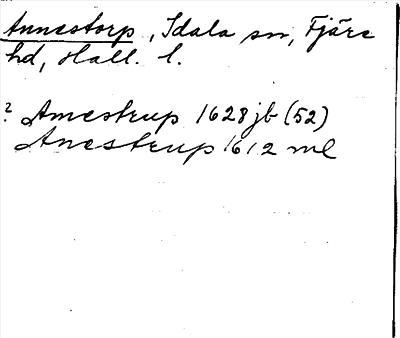 Annestorp, Idala sn, Fjäre
hd, Hall. l.
? Amestrup 1628 jb (52)
Anestrup 1612 ml